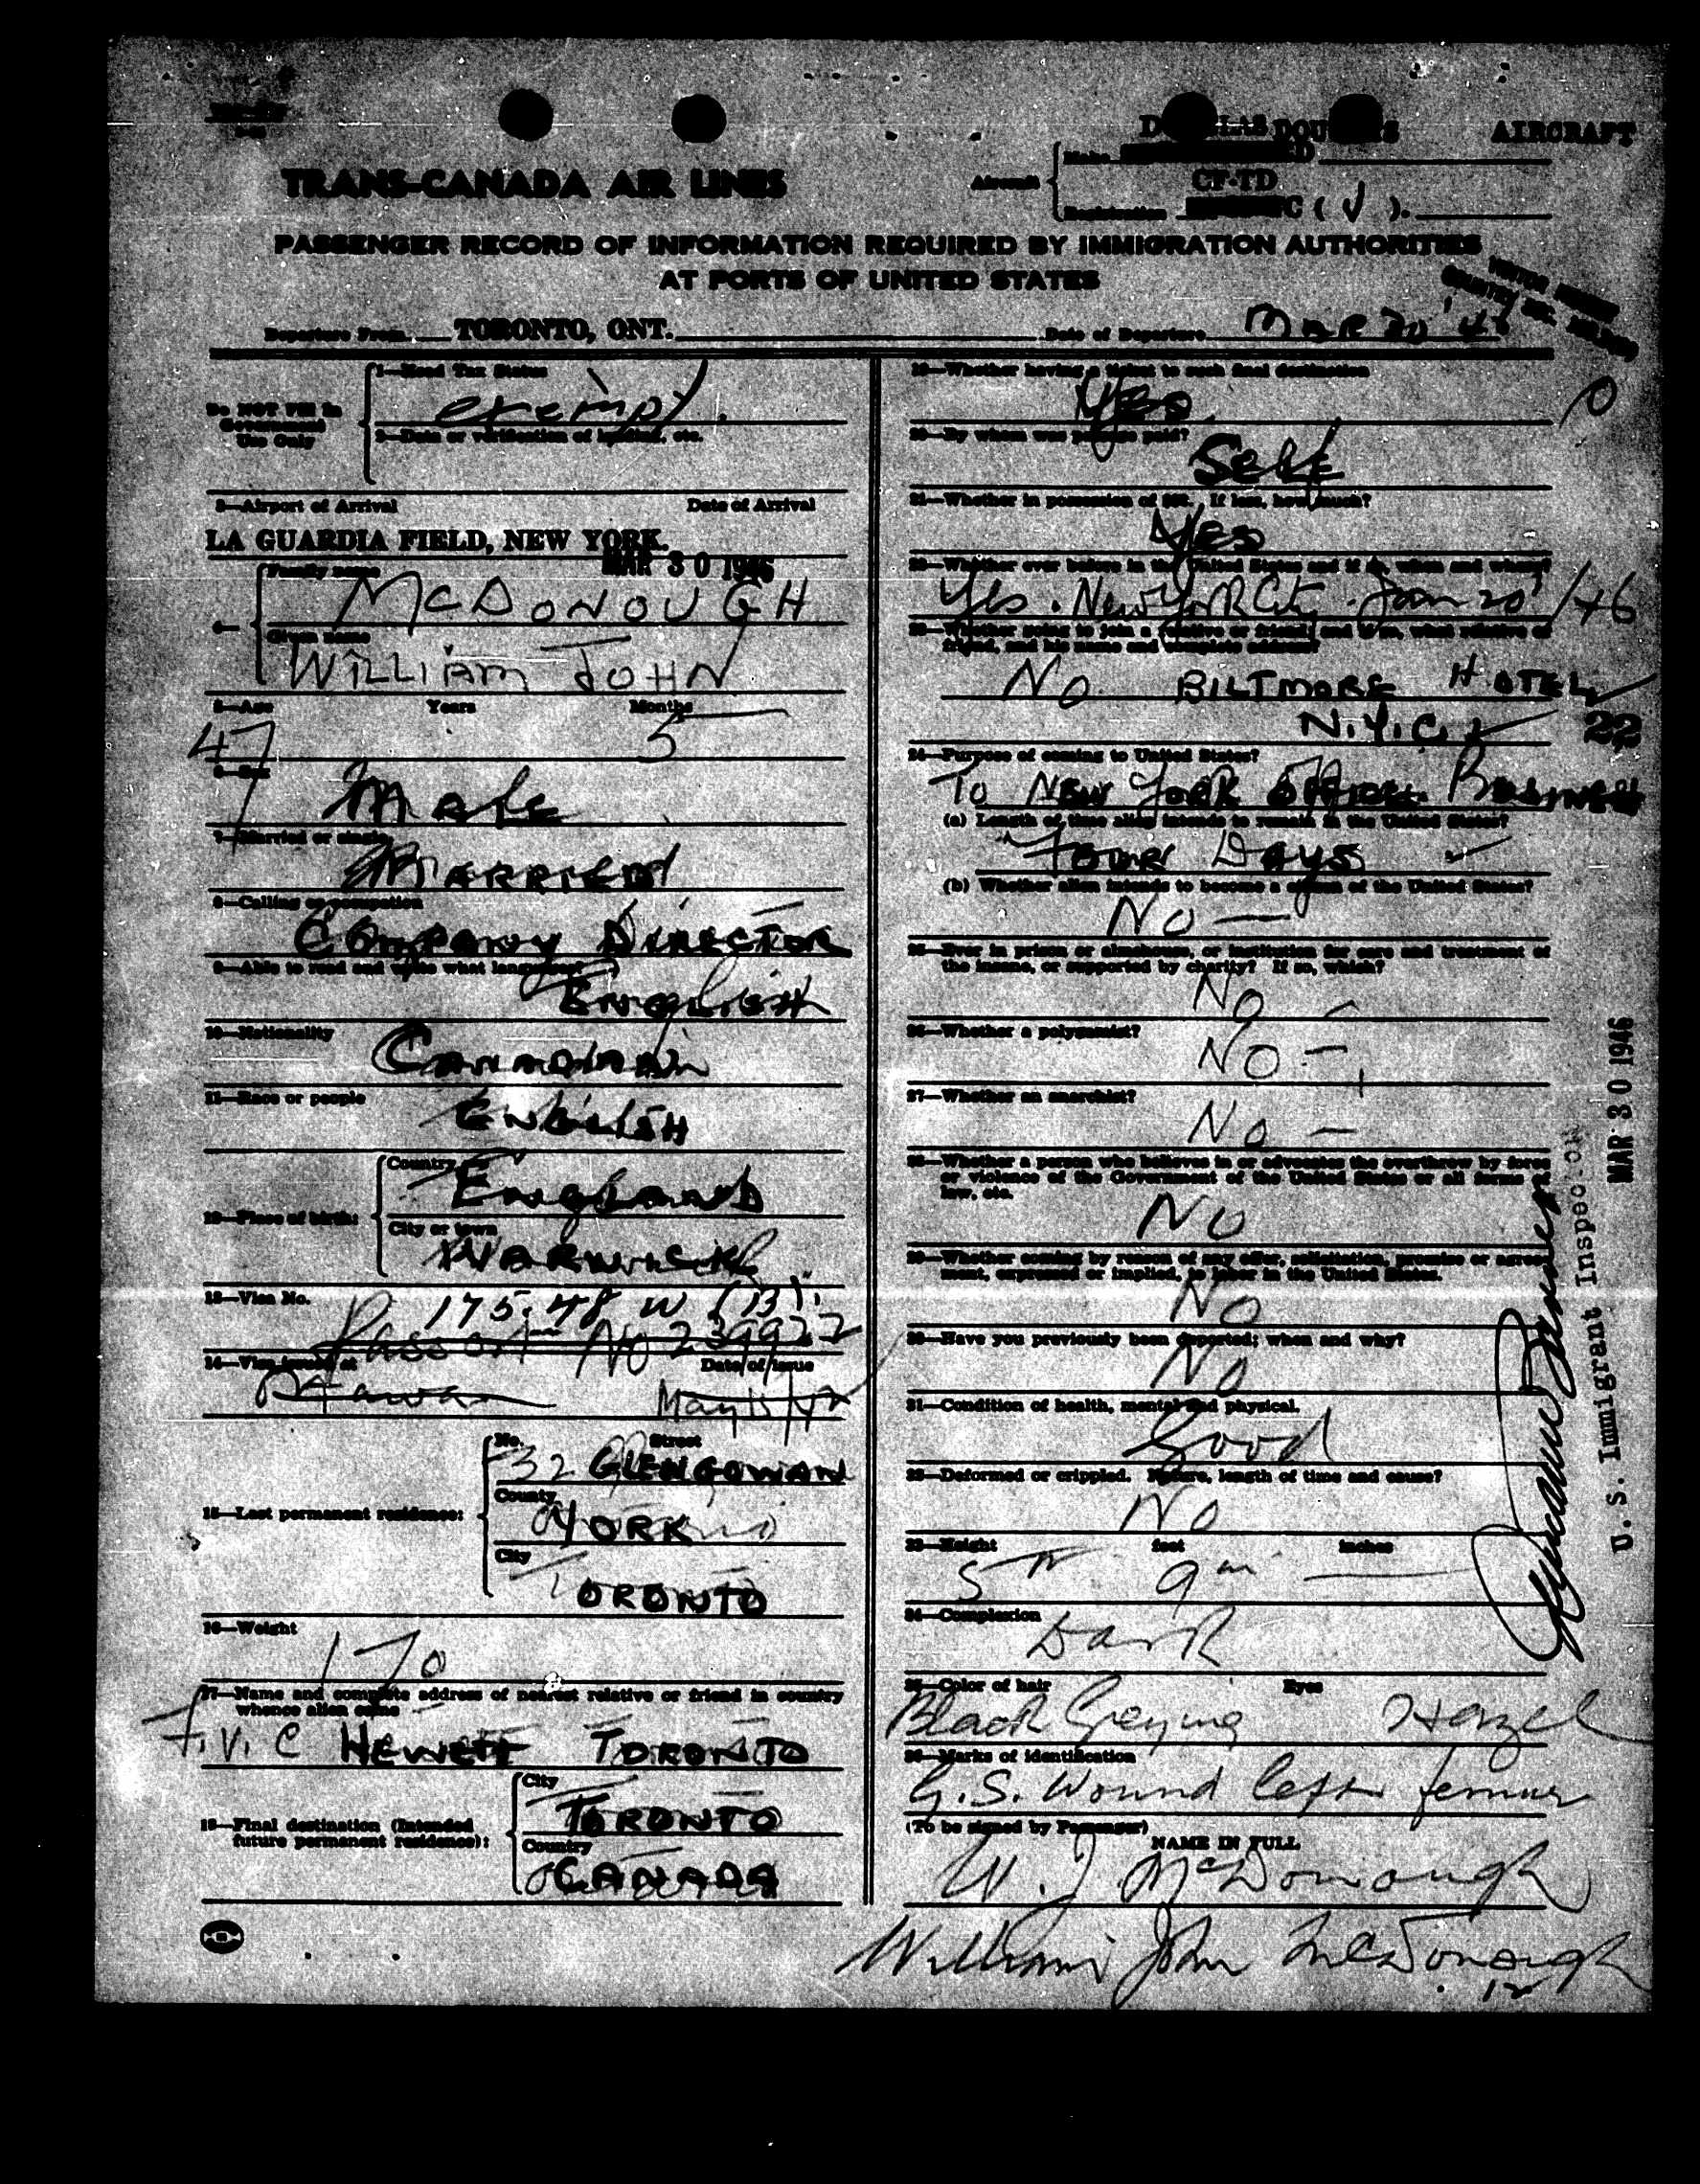 DOUGLAS AIRCRAFT
TRANS-CANADA AIR LINES
Aircraft
Make
CF-TD
Registration C ( √ ).
PASSENGER RECORD OF INFORMATION REQUIRED BY IMMIGRATION AUTHORITIES
AT PORTS OF UNITED STATES
Departure From TORONTO, ONT. Date of Departure MAR 30
Do NOT Fill In
Government
Use Only
1—Head Tax Status
exempt
2—Date or verification of
3—Airport of Arrival Date of Arrival
LA GUARDIA FIELD, NEW YORK.
MAR 30 1946
4—
Family name
McDONOUGH
Given name
WILLIAM JOHN
5—Age Years Months
47 5
6—Sex
Male
7—Married or single
MARRIED
8—Calling or occupation
COMPANY DIRECTOR
9—Able to read and write what language
ENGLISH
10—Nationality
CANADIAN
11—Race or people
ENGLISH
12—Place of birth:
Country
ENGLAND
City or town
WARWICK
13—Visa No.
175.48 W (B)
Passport No 239922
14—Visa issued at Date of issue
Ottawa May
15—Last permanent residence:
No. Street
32 GLENGOWAN
County
YORK
City
TORONTO
16—Weight
170
17—Name and complete address of nearest relative or friend in country
whence alien came
F.V.C HEWETT TORONTO
18—Final destination (Intended
future permanent residence):
City
TORONTO
Country
CANADA
19—Whether having a ticket to such final destination
Yes
0
20—By whom was passage paid?
Self
21—Whether in possession of $50. If less, how much?
Yes
22—Whether ever before in the United States and if so, when and where?
Yes. New York City. Jan 20/46
23—Whether going to join a relative or friend, and if so, what relative or
friend, and his name and complete address?
No. BILTMORE HOTEL
N.Y.C.
22
24—Purpose of coming to United States?
To NEW YORK OFFICE. BUSINESS
(a) Length of time alien intends to remain in the United States?
FOUR DAYS
(b) Whether alien intends to become a citizen of the United States?
No —
25—Ever in prison or almshouse, or institution for care and treatment of
the insane, or supported by charity? If so, which?
No
26—Whether a polygamist?
No —
27—Whether an anarchist?
No —
28—Whether a person who believes in or advocates the overthrow by force
or violence of the Government of the United States or all forms of
law, etc.
No
29—Whether coming by reason of any offer, solicitation, promise or agree-
ment, expressed or implied, to labor in the United States.
No
30—Have you previously been deported; when and why?
No
31—Condition of health, mental and physical.
Good
32—Deformed or crippled. Nature, length of time and cause?
No
33—Height feet inches
5 ft 9 in
34—Complexion
Dark
35—Color of hair Eyes
Black Greying Hazel
36—Marks of identification
G.S. Wound left femur
(To be signed by Passenger)
NAME IN FULL
W. J. McDonough
William John McDonough
12
U. S. Immigrant Inspector
MAR 30 1946